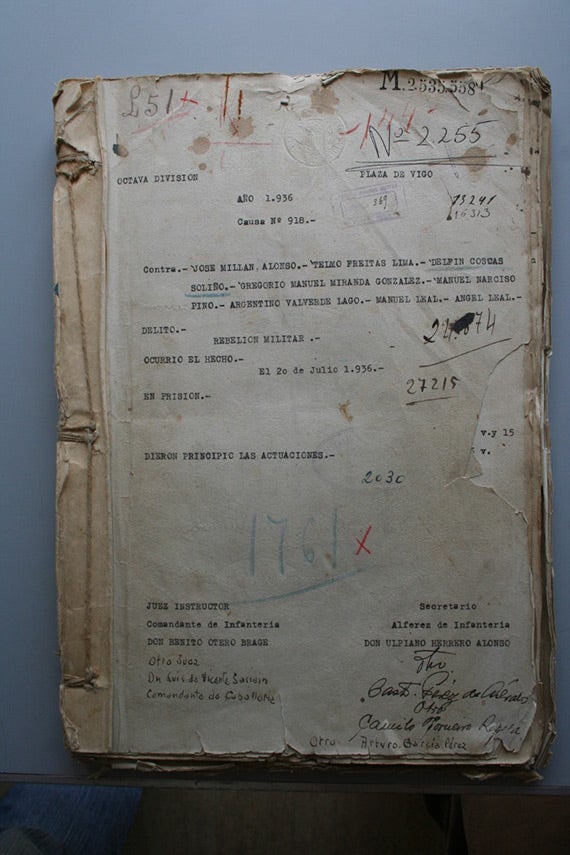 M.2.535.558
£51
Nº 2.255
OCTAVA DIVISION
PLAZA DE VIGO
AÑO 1.936
369
13241
16313
Causa Nº 918.-
Contra.- JOSE MILLAN ALONSO.- TELMO FREITAS LIMA.- DELFIN COSCAS
SOLIÑO.- GREGORIO MANUEL MIRANDA GONZALEZ.- MANUEL NARCISO
PINO.- ARGENTINO VALVERDE LAGO.- MANUEL LEAL.- ANGEL LEAL.-
DELITO.-
REBELION MILITAR .-
OCURRIO EL HECHO.-
El 2o de Julio 1.936.-
27215
EN PRISION.-
v.y 15
v.
DIERON PRINCIPIO LAS ACTUACIONES.-
2030
1761
JUEZ INSTRUCTOR
Comandante de Infanteria
DON BENITO OTERO BRAGE
Otro Juez
Dn Luis de Vicente
Comandante de
Secretario
Alferez de Infanteria
DON ULPIANO HERRERO ALONSO
Otro
Otro
Camilo
Otro Arturo García Pérez